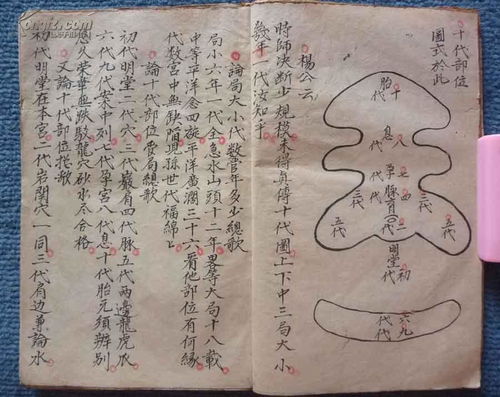 十代部位
圖式於此
十
胎
代
息 八
代
孕 七
代
脉 四
代
育 二
代
三代
三代
五代
五代
明堂
初
代
六九
代代
楊公云
時師决断少規模未得真傳十代圖上下中三局大小
幾年一代汝知乎
論局大小代數管年多少總歌
局小六年一代全急水山頭十二年畧等大局十八載
中等平洋念四旋平洋廣濶三十六看他部位有何緣
代數宮中無缺陷見孫世代福綿上
論十代部位全局總歌
初代明堂二代穴三代巖肩四代脉五代兩邊龍虎爪
六代九代案中列七代孕宮八代息十代胎元須辨别
悠久榮華無跌駁龍穴砂水尽合格
又論十代部位挖歌
初代明堂在本宮二代岩閗穴一同三代肩边兼論水